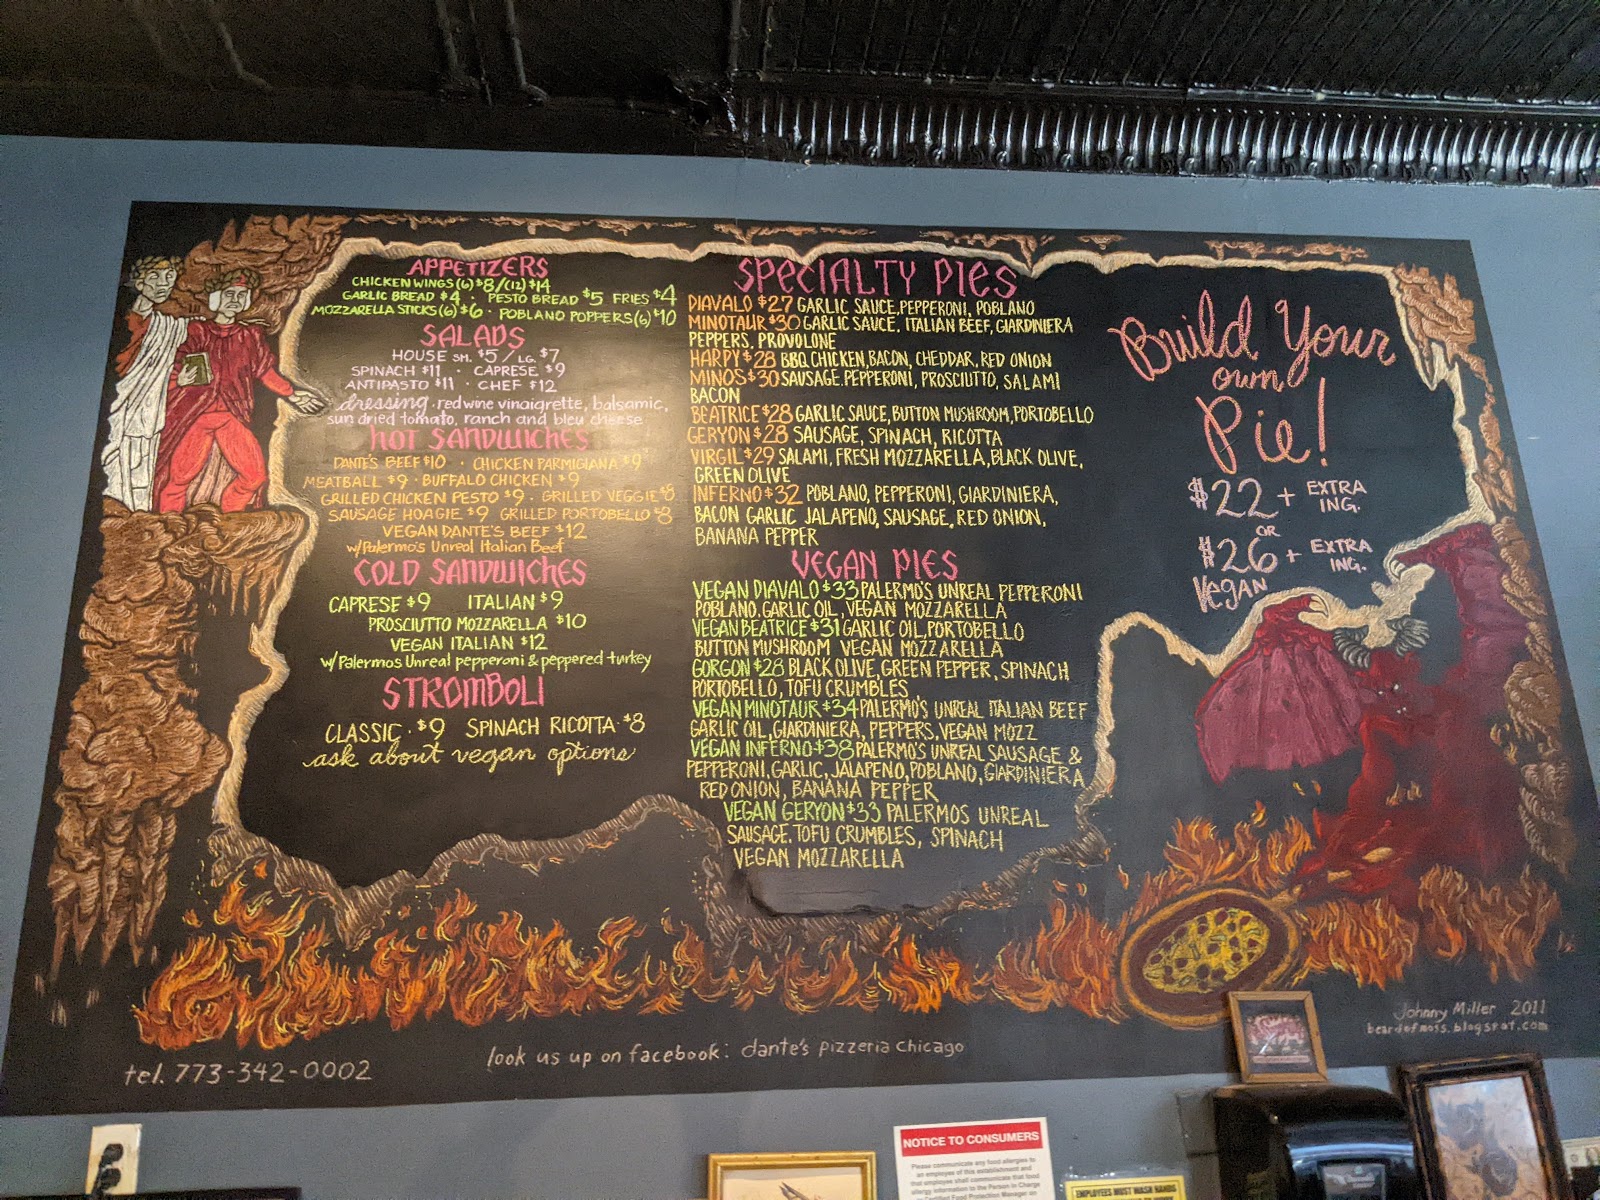 APPETIZERS
CHICKEN WINGS (6) $8/(12) $14
GARLIC BREAD $4 · PESTO BREAD $5 FRIES $4
MOZZARELLA STICKS (6) $6 · POBLANO POPPERS (6) $10
SALADS
HOUSE SM. $5 / LG. $7
SPINACH $11 · CAPRESE $9
ANTIPASTO $11 · CHEF $12
dressing · red wine vinaigrette, balsamic,
sun dried tomato, ranch and bleu cheese
HOT SANDWICHES
DANTE'S BEEF $10 · CHICKEN PARMIGIANA $9
MEATBALL $9 · BUFFALO CHICKEN $9
GRILLED CHICKEN PESTO $9 · GRILLED VEGGIE $8
SAUSAGE HOAGIE $9 GRILLED PORTOBELLO $8
VEGAN DANTE'S BEEF $12
w/Palermo's Unreal Italian Beef
COLD SANDWICHES
CAPRESE $9 ITALIAN $9
PROSCIUTTO MOZZARELLA $10
VEGAN ITALIAN $12
w/Palermos Unreal pepperoni & peppered turkey
STROMBOLI
CLASSIC · $9 SPINACH RICOTTA · $8
ask about vegan options
SPECIALTY PIES
DIAVALO $27 GARLIC SAUCE, PEPPERONI, POBLANO
MINOTAUR $30 GARLIC SAUCE, ITALIAN BEEF, GIARDINIERA
PEPPERS, PROVOLONE
HARPY $28 BBQ CHICKEN, BACON, CHEDDAR, RED ONION
MINOS $30 SAUSAGE, PEPPERONI, PROSCIUTTO, SALAMI
BACON
BEATRICE $28 GARLIC SAUCE, BUTTON MUSHROOM, PORTOBELLO
GERYON $28 SAUSAGE, SPINACH, RICOTTA
VIRGIL $29 SALAMI, FRESH MOZZARELLA, BLACK OLIVE,
GREEN OLIVE
INFERNO $32 POBLANO, PEPPERONI, GIARDINIERA,
BACON GARLIC JALAPENO, SAUSAGE, RED ONION,
BANANA PEPPER
VEGAN PIES
VEGAN DIAVALO $33 PALERMO'S UNREAL PEPPERONI
POBLANO, GARLIC OIL, VEGAN MOZZARELLA
VEGAN BEATRICE $31 GARLIC OIL, PORTOBELLO
BUTTON MUSHROOM VEGAN MOZZARELLA
GORGON $28 BLACK OLIVE, GREEN PEPPER, SPINACH
PORTOBELLO, TOFU CRUMBLES
VEGAN MINOTAUR $34 PALERMO'S UNREAL ITALIAN BEEF
GARLIC OIL, GIARDINIERA, PEPPERS, VEGAN MOZZ
VEGAN INFERNO $38 PALERMO'S UNREAL SAUSAGE &
PEPPERONI, GARLIC, JALAPENO, POBLANO, GIARDINIERA
RED ONION, BANANA PEPPER
VEGAN GERYON $33 PALERMOS UNREAL
SAUSAGE, TOFU CRUMBLES, SPINACH
VEGAN MOZZARELLA
Build Your
own
Pie!
$22 + EXTRA ING.
OR
$26 + EXTRA ING.
Vegan
Johnny Miller 2011
beardofmoss.blogspot.com
look us up on facebook: dante's pizzeria chicago
tel. 773-342-0002
NOTICE TO CONSUMERS
Please communicate any food allergies to
an employee of this establishment and
that employee shall communicate that food
allergy information to the Person in Charge
or Certified Food Protection Manager on
EMPLOYEES MUST WASH HANDS